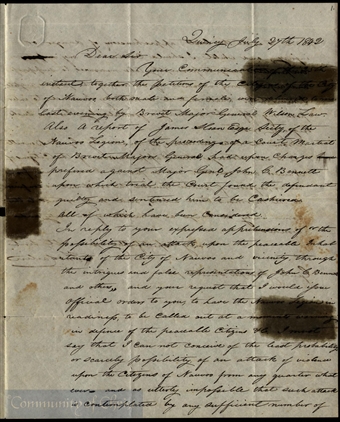 Quincy July 27th 1842
Dear Sir
Your Communication
together the petitions of the Citizens of the City
of Nauvoo both male and female, were
last evening by Brevet Major General Wilson Law.
Also A report of James Sloan Secty. of the
Nauvoo Legion, of the proceedings of a Court Martial
of Brevet Major Generals had upon charges
preferred against Major Genl. John C. Bennett
upon which trial the Court found the defendant
guilty and sentenced him to be Cashiered
All of which have been considered.
In reply to your expressed apprehensions of the
possibility of an attack upon the peaceable Inhab
itants of the City of Nauvoo and vicinity through
the intrigues and false representations of John C. Bennett
and others, and your request that I would issue
official orders to you to have the Nauvoo Legion in
readiness, to be called out at a moments warning
in defence of the peaceable Citizens &c. I must
say that I can not conceive of the least probability
or scarcely possibility of an attack of violence
upon the Citizens of Nauvoo from any quarter what
ever and as utterly impossible that such attack
is contemplated by any sufficient number of